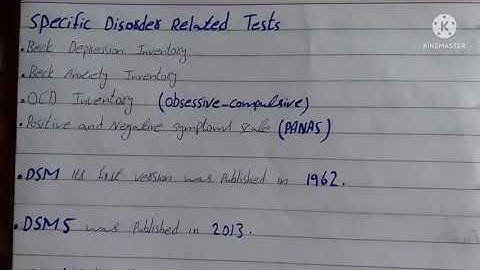 Specific Disorder Related Tests
KINEMASTER
• Beck Depression Inventory
• Beck Anxiety Inventory
• OCD Inventory (Obsessive-compulsive)
• Positive and Negative symptoms scale (PANAS)
• DSM Its first version was Published in 1962.
• DSM5 was Published in 2013.